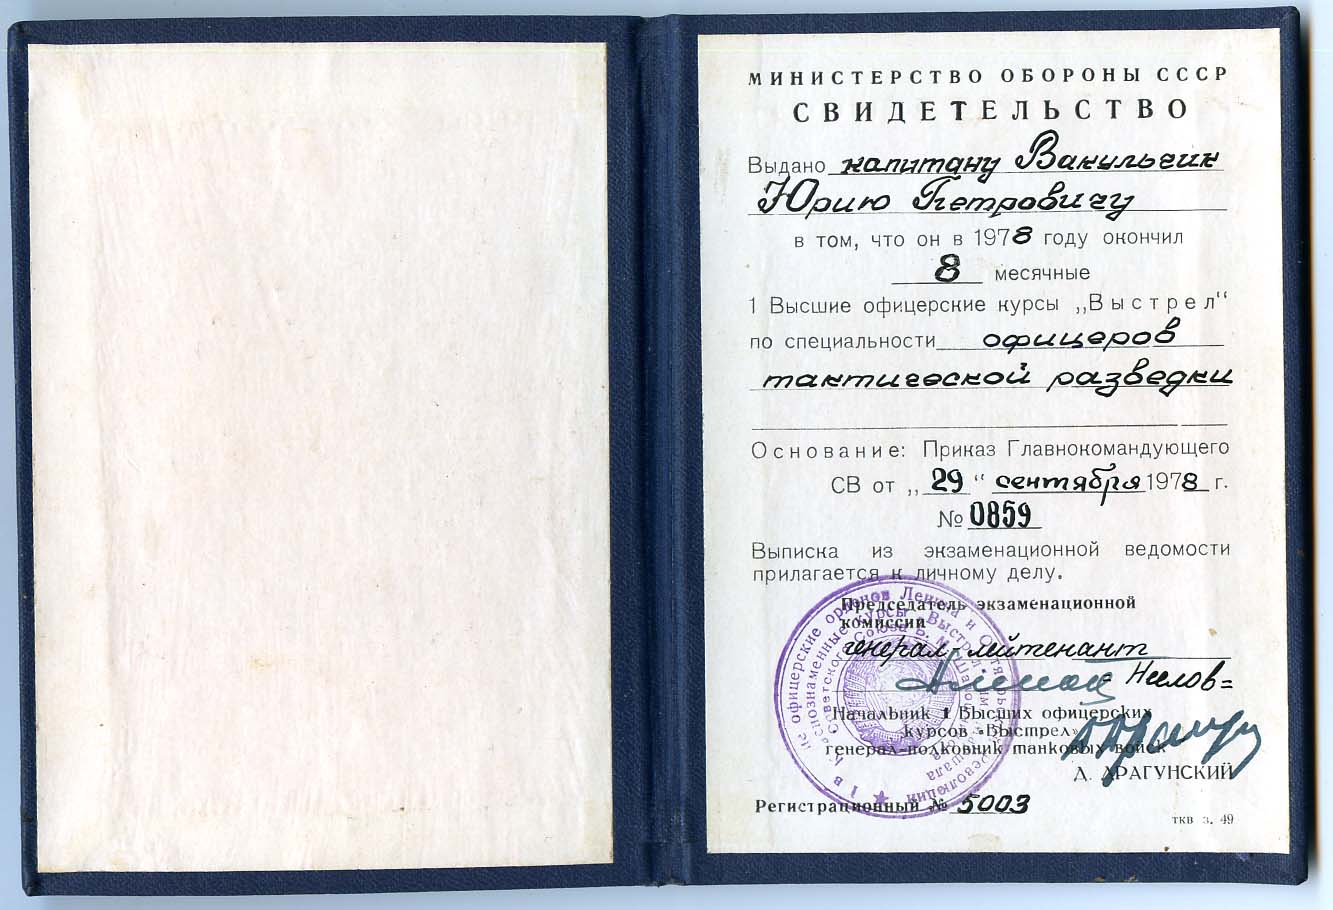 МИНИСТЕРСТВО ОБОРОНЫ СССР
СВИДЕТЕЛЬСТВО
Выдано капитану Вакульчик
Юрию Петровичу
в том, что он в 1978 году окончил
8 месячные
1 Высшие офицерские курсы „Выстрел“
по специальности офицеров
тактической разведки
Основание: Приказ Главнокомандующего
СВ от „29“ сентября 1978 г.
№ 0859
Выписка из экзаменационной ведомости
прилагается к личному делу.
Председатель экзаменационной
комиссии
генерал-лейтенант
Нилов
Начальник 1 Высших офицерских
курсов «Выстрел»
генерал-полковник танковых войск
Д. ДРАГУНСКИЙ
Регистрационный № 5003
ткв з. 49
офицерские орденов Ленина и Октябрьской Революции
Краснознаменные курсы Выстрел
Советского Союза Б. М. Шапошникова